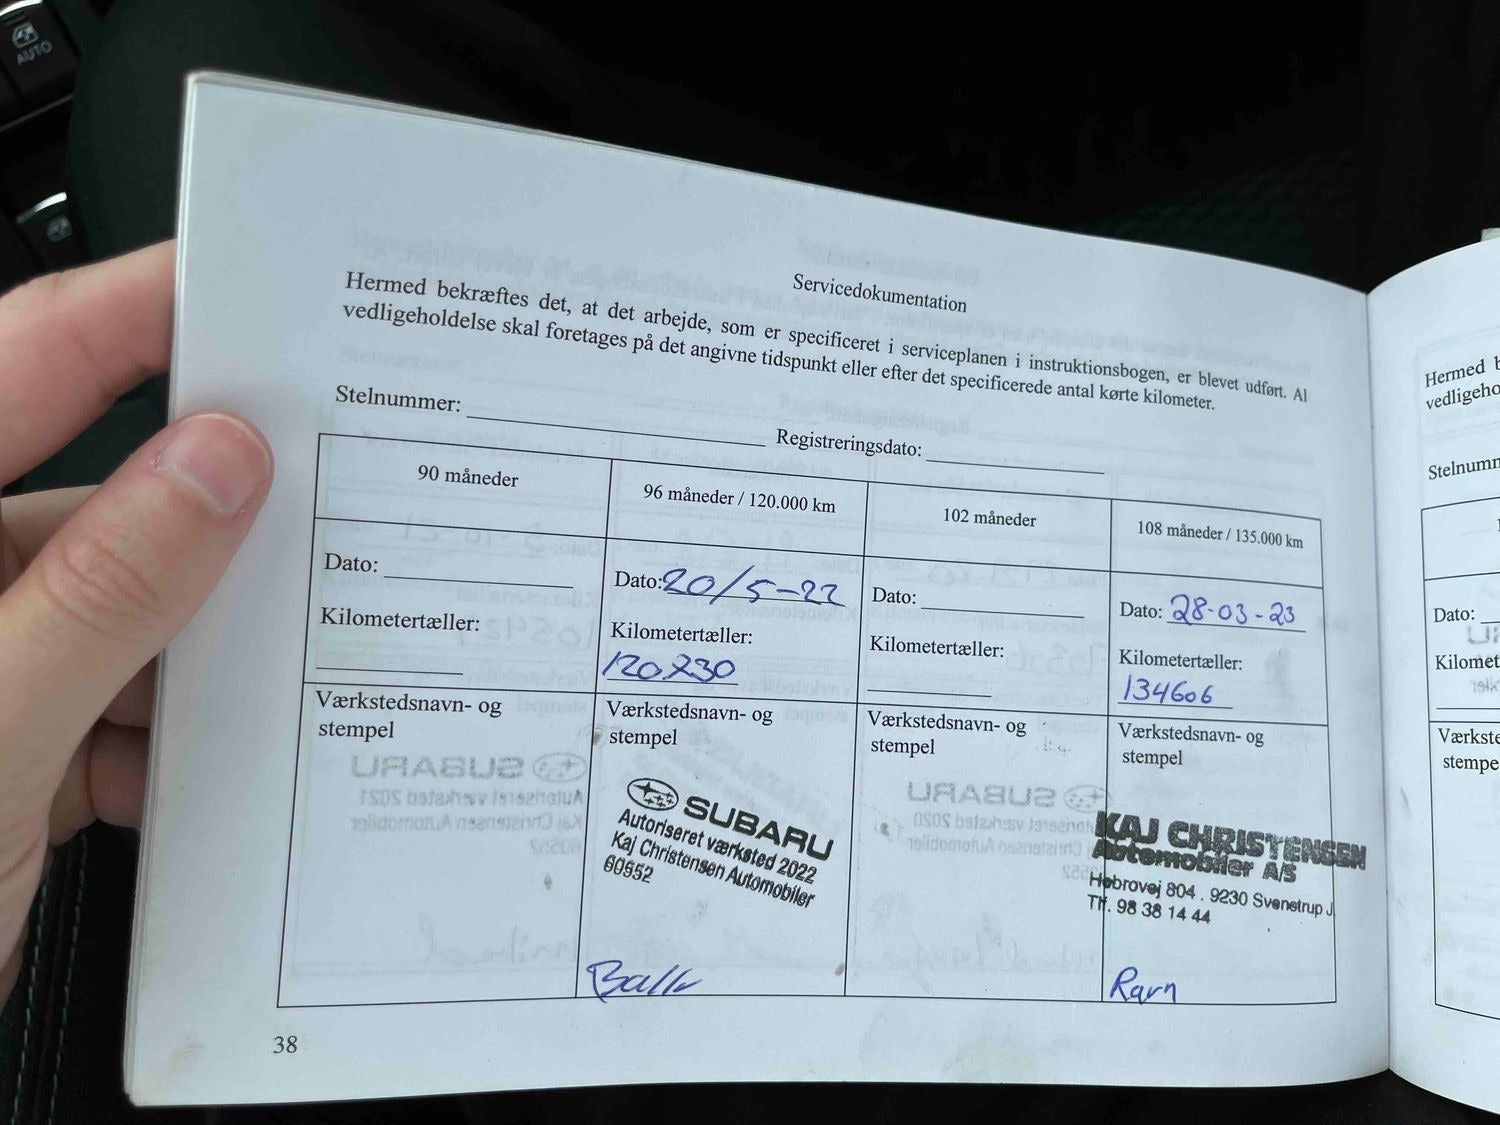 AUTO
Servicedokumentation
Hermed bekræftes det, at det arbejde, som er specificeret i serviceplanen i instruktionsbogen, er blevet udført. Al
vedligeholdelse skal foretages på det angivne tidspunkt eller efter det specificerede antal kørte kilometer.
Stelnummer:
Registreringsdato:
90 måneder
96 måneder / 120.000 km
102 måneder
108 måneder / 135.000 km
Dato:
Dato: 20/5-22
Dato:
Dato: 28-03-23
Kilometertæller:
Kilometertæller:
120.230
Kilometertæller:
Kilometertæller:
134606
Værkstedsnavn- og
stempel
Værkstedsnavn- og
stempel
SUBARU
Autoriseret værksted 2022
Kaj Christensen Automobiler
60552
Værkstedsnavn- og
stempel
Værkstedsnavn- og
stempel
KAJ CHRISTENSEN
Automobiler A/S
Hobrovej 804 . 9230 Svenstrup J.
Tlf. 98 38 14 44
38
Hermed
Dato: